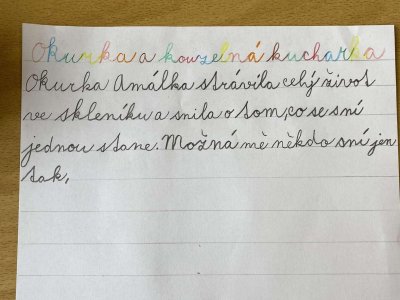 Okurka a kouzelná kuchařka
Okurka Amálka strávila celý život
ve skleníku a snila o tom, co se s ní
jednou stane. Možná mě někdo sní jen
tak,